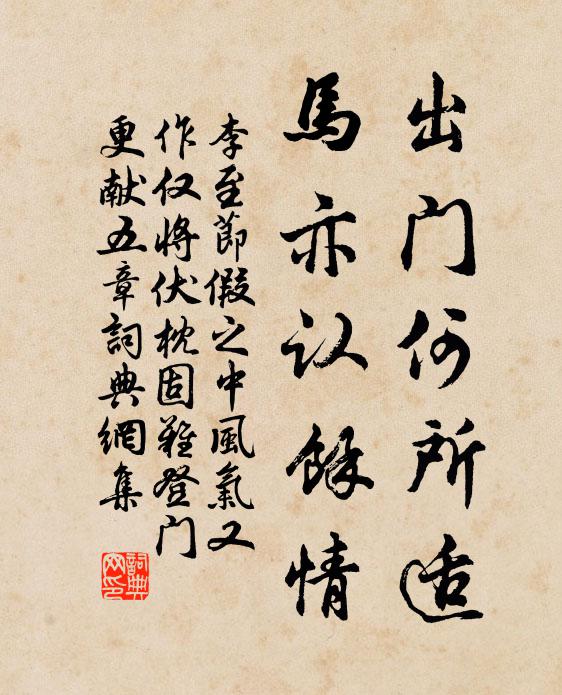 出门何所适
馬亦认餘情
李至節假之中風氣又
作仅將伏枕固難登门
更献五章詞典網集
詞典网印